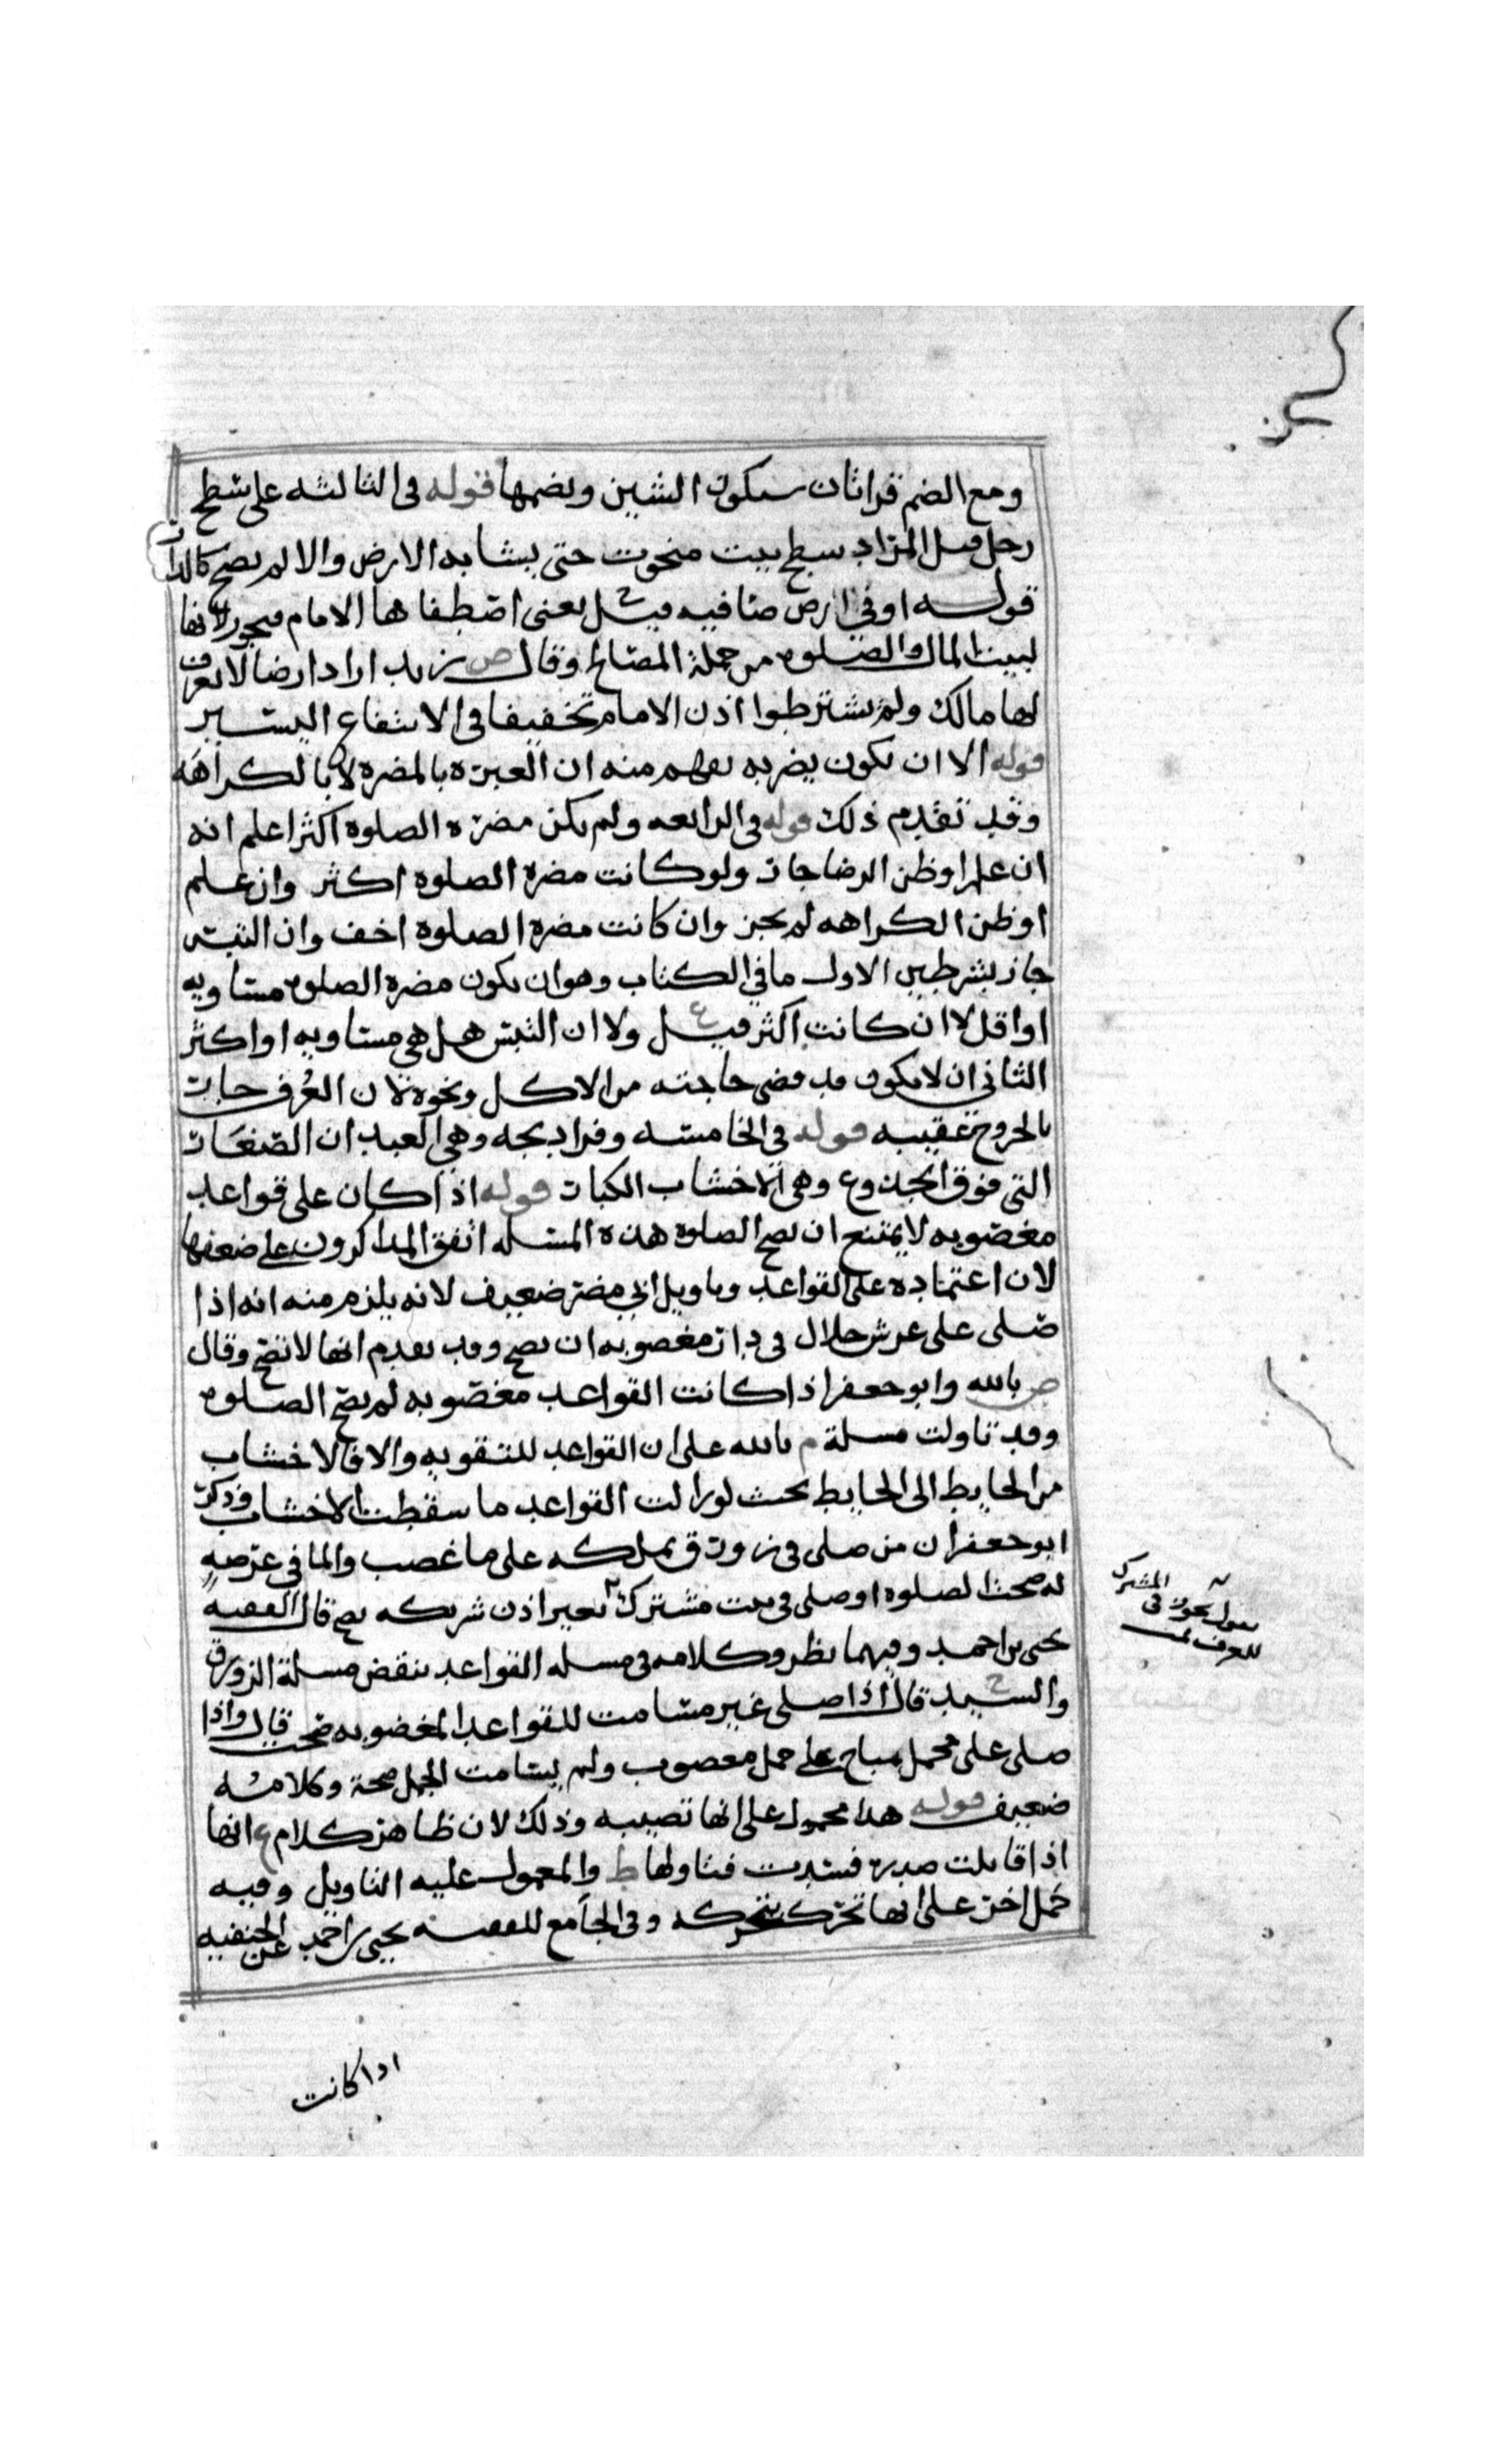 ومع الضم قراتان سكون الشين وبضمها قوله فى الثالثه على سطح
رجل قيل المراد سطح بيت منحوت حتى يشابه الارض والا لم يصح كالدار
قوله او فى ارض صافيه قيل يعنى اصطفاها الامام فيجوز لانها
لبيت المال والصلوه من جملة المصالح وقال ص زيد اراد ارضا لا يعرف
لها مالك ولم يشترطوا اذن الامام تخفيفا فى الانتفاع اليسير
قوله الا ان يكون يضر به يفهم منه ان العبرة بالمضره لا بالكراهه
وقد تقدم ذلك قوله فى الرابعه ولم يكن مضرة الصلوه اكثر اعلم انه
ان علم او ظن الرضا جاز ولو كانت مضرة الصلوه اكثر وان علم
او ظن الكراهه لم يجز وان كانت مضرة الصلوة اخف وان التبس
جاز بشرطين الاول ما في الكتاب وهو ان يكون مضرة الصلوه مساويه
او اقل لا ان كانت اكثر قيل ع ولا ان التبس هل هى مساويه او اكثر
الثانى ان لا يكون قد قضى حاجته من الاكل ونحوه لان العرف جار
بالخروج عقيبه قوله فى الخامسه
التى فوق الجذوع وهى الاخشاب الكبار قوله اذا كان على قواعد
مغصوبه لا يمتنع ان يصح الصلوه هذه المسله اتفق المذاكرون على ضعفها
لان اعتماده على القواعد وتاويل ابي مضر ضعيف لانه يلزم منه انه اذا
صلى على عرش حلال فى دار مغصوبه ان يصح وقد تقدم انها لا تصح وقال
ص بالله وابو جعفر اذا كانت القواعد مغصوبه لم يصح الصلوه
وقد تاولت مسلة م بالله على ان القواعد للتقويه والا فالاخشاب
من الحايط الى الحايط بحيث لو زالت القواعد ما سقطت الاخشاب وذكر
ابو جعفر ان من صلى فى زورق يملكه على ما غصب والما في عرصه
له صحت الصلوه او صلى فى بيت مشترك بغير اذن شريكه يصح قال الفقيه
يحيى بن احمد وفيهما نظر وكلامه فى مسله القواعد ينقض مسلة الزورق
والسيد ح قال اذا صلى غير مسامت للقواعد المغصوبه صحت قال واذا
صلى على محمل مباح على جمل مغصوب ولم يسامت الجمل صحة وكلامه
ضعيف قوله هذا محمول على انها تصيبه وذلك لان ظاهر كلام ع انها
اذا قابلت صدره فسدت فتاولها ط والمعمول عليه التاويل وفيه
حمل اخر على انها تحرك بتحركه وفى الجامع للفقيه يحيى بن احمد عن الحنفيه
اذا كانت
المشترك